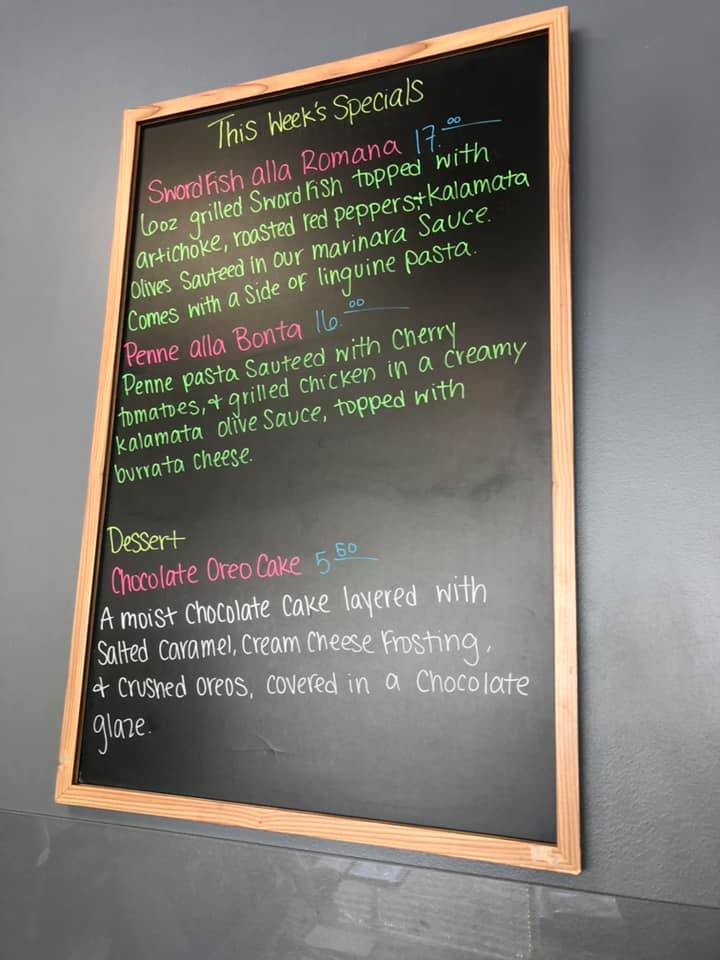 This Week's Specials
Swordfish alla Romana 17.00
6oz grilled Swordfish topped with
artichoke, roasted red peppers + Kalamata
Olives Sauteed in our marinara Sauce.
Comes with a Side of linguine pasta.
Penne alla Bonta 16.00
Penne pasta Sauteed with Cherry
tomatoes, & grilled chicken in a creamy
kalamata olive Sauce, topped with
burrata cheese.
Dessert
Chocolate Oreo Cake 5.50
A moist Chocolate Cake layered with
Salted Caramel, Cream Cheese Frosting,
& Crushed Oreos, covered in a Chocolate
glaze.